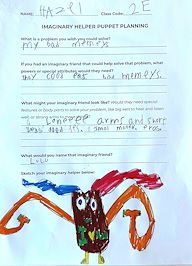 NAME: Hazel Class Code: 2E
IMAGINARY HELPER PUPPET PLANNING
What is a problem you wish you could solve?
my bad memerys
If you had an imaginary friend that could help solve that problem, what
powers or special attributes would they need?
They could eat bad memerys.
What might your imaginary friend look like? Would they need special
features or body parts to solve your problem, like big ears to hear and listen
well, or strong
arms and short
small mouth
What would you name that imaginary friend?
Lulu
Sketch your imaginary helper below: